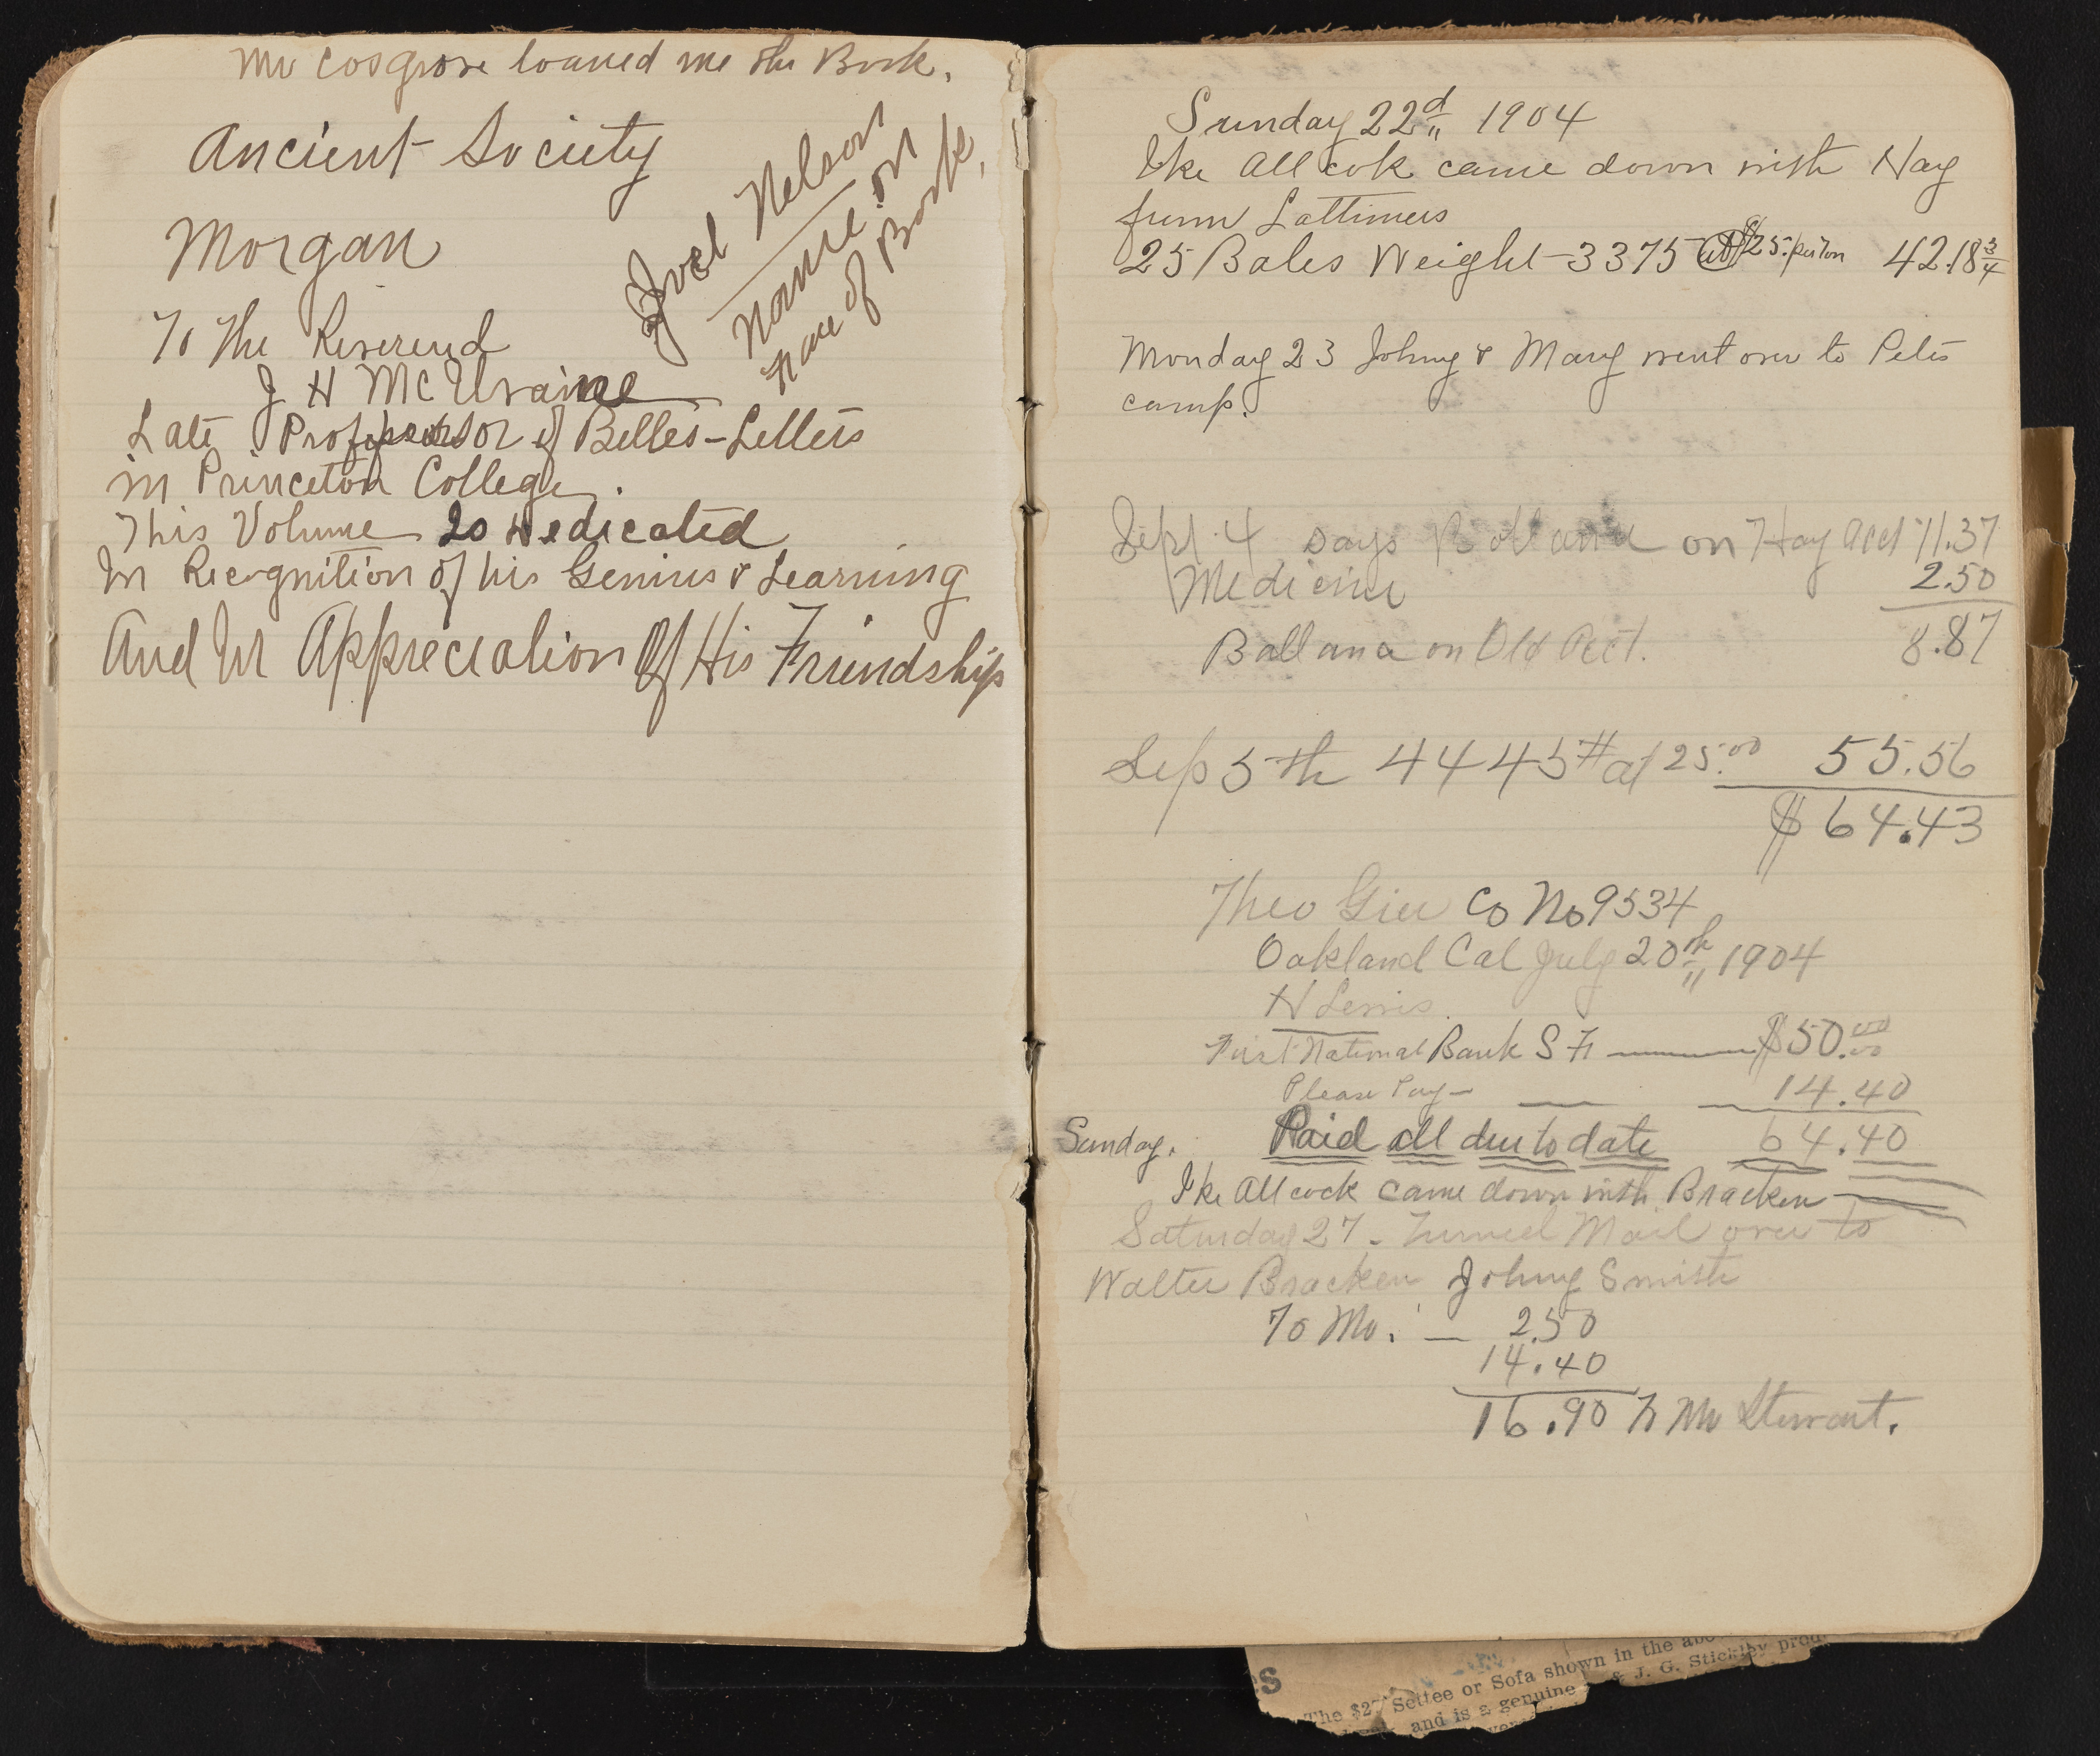 Mr Cosgrove loaned me the Book.
Ancient Society
Morgan
Joel Nelson
name on
of Book.
To The Reverend
J H McIlvaine
Late Professor of Belles-Letters
in Princeton College.
This Volume Is Dedicated
In Recognition of his Genius & Learning
And In Appreciation Of His Friendship
Sunday 22d 1904
Ike Allcok came down with Hay
from Lattimers
25 Bales Weight - 3375 at $25. per ton 42.18 3/4
Monday 23 Johny & Mary went over to Petes
camp.
Sept. 4 Says Ballance on Hay acct 11.37
Medicine 2.50
Ballance on Old Acct. 8.87
Sep 5th 4445# at 25.00 55.56
$64.43
Theo Gier Co No 9534
Oakland Cal July 20th 1904
H Lewis.
First National Bank S F $50.00
Please Pay - 14.40
Sunday. Paid all due to date 64.40
Ike Allcock came down with Bracken
Saturday 27 - Turned Mail over to
Walter Bracken Johny Smith
To Mo. - 2.50
14.40
16.90 Mr Stewart.
s
The $27 Settee or Sofa shown in the abo
and is a genuine & J. G. Stickley prod